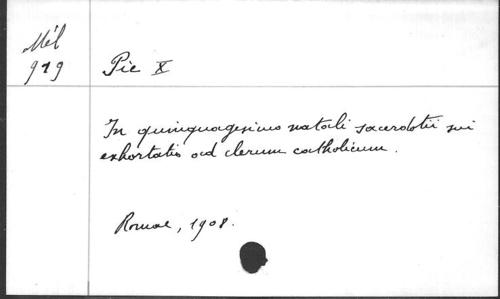 Mél
919
Pie X
In quinquagesimo natali sacerdotii sui
exhortatio ad clerum catholicum.
Romae, 1908.